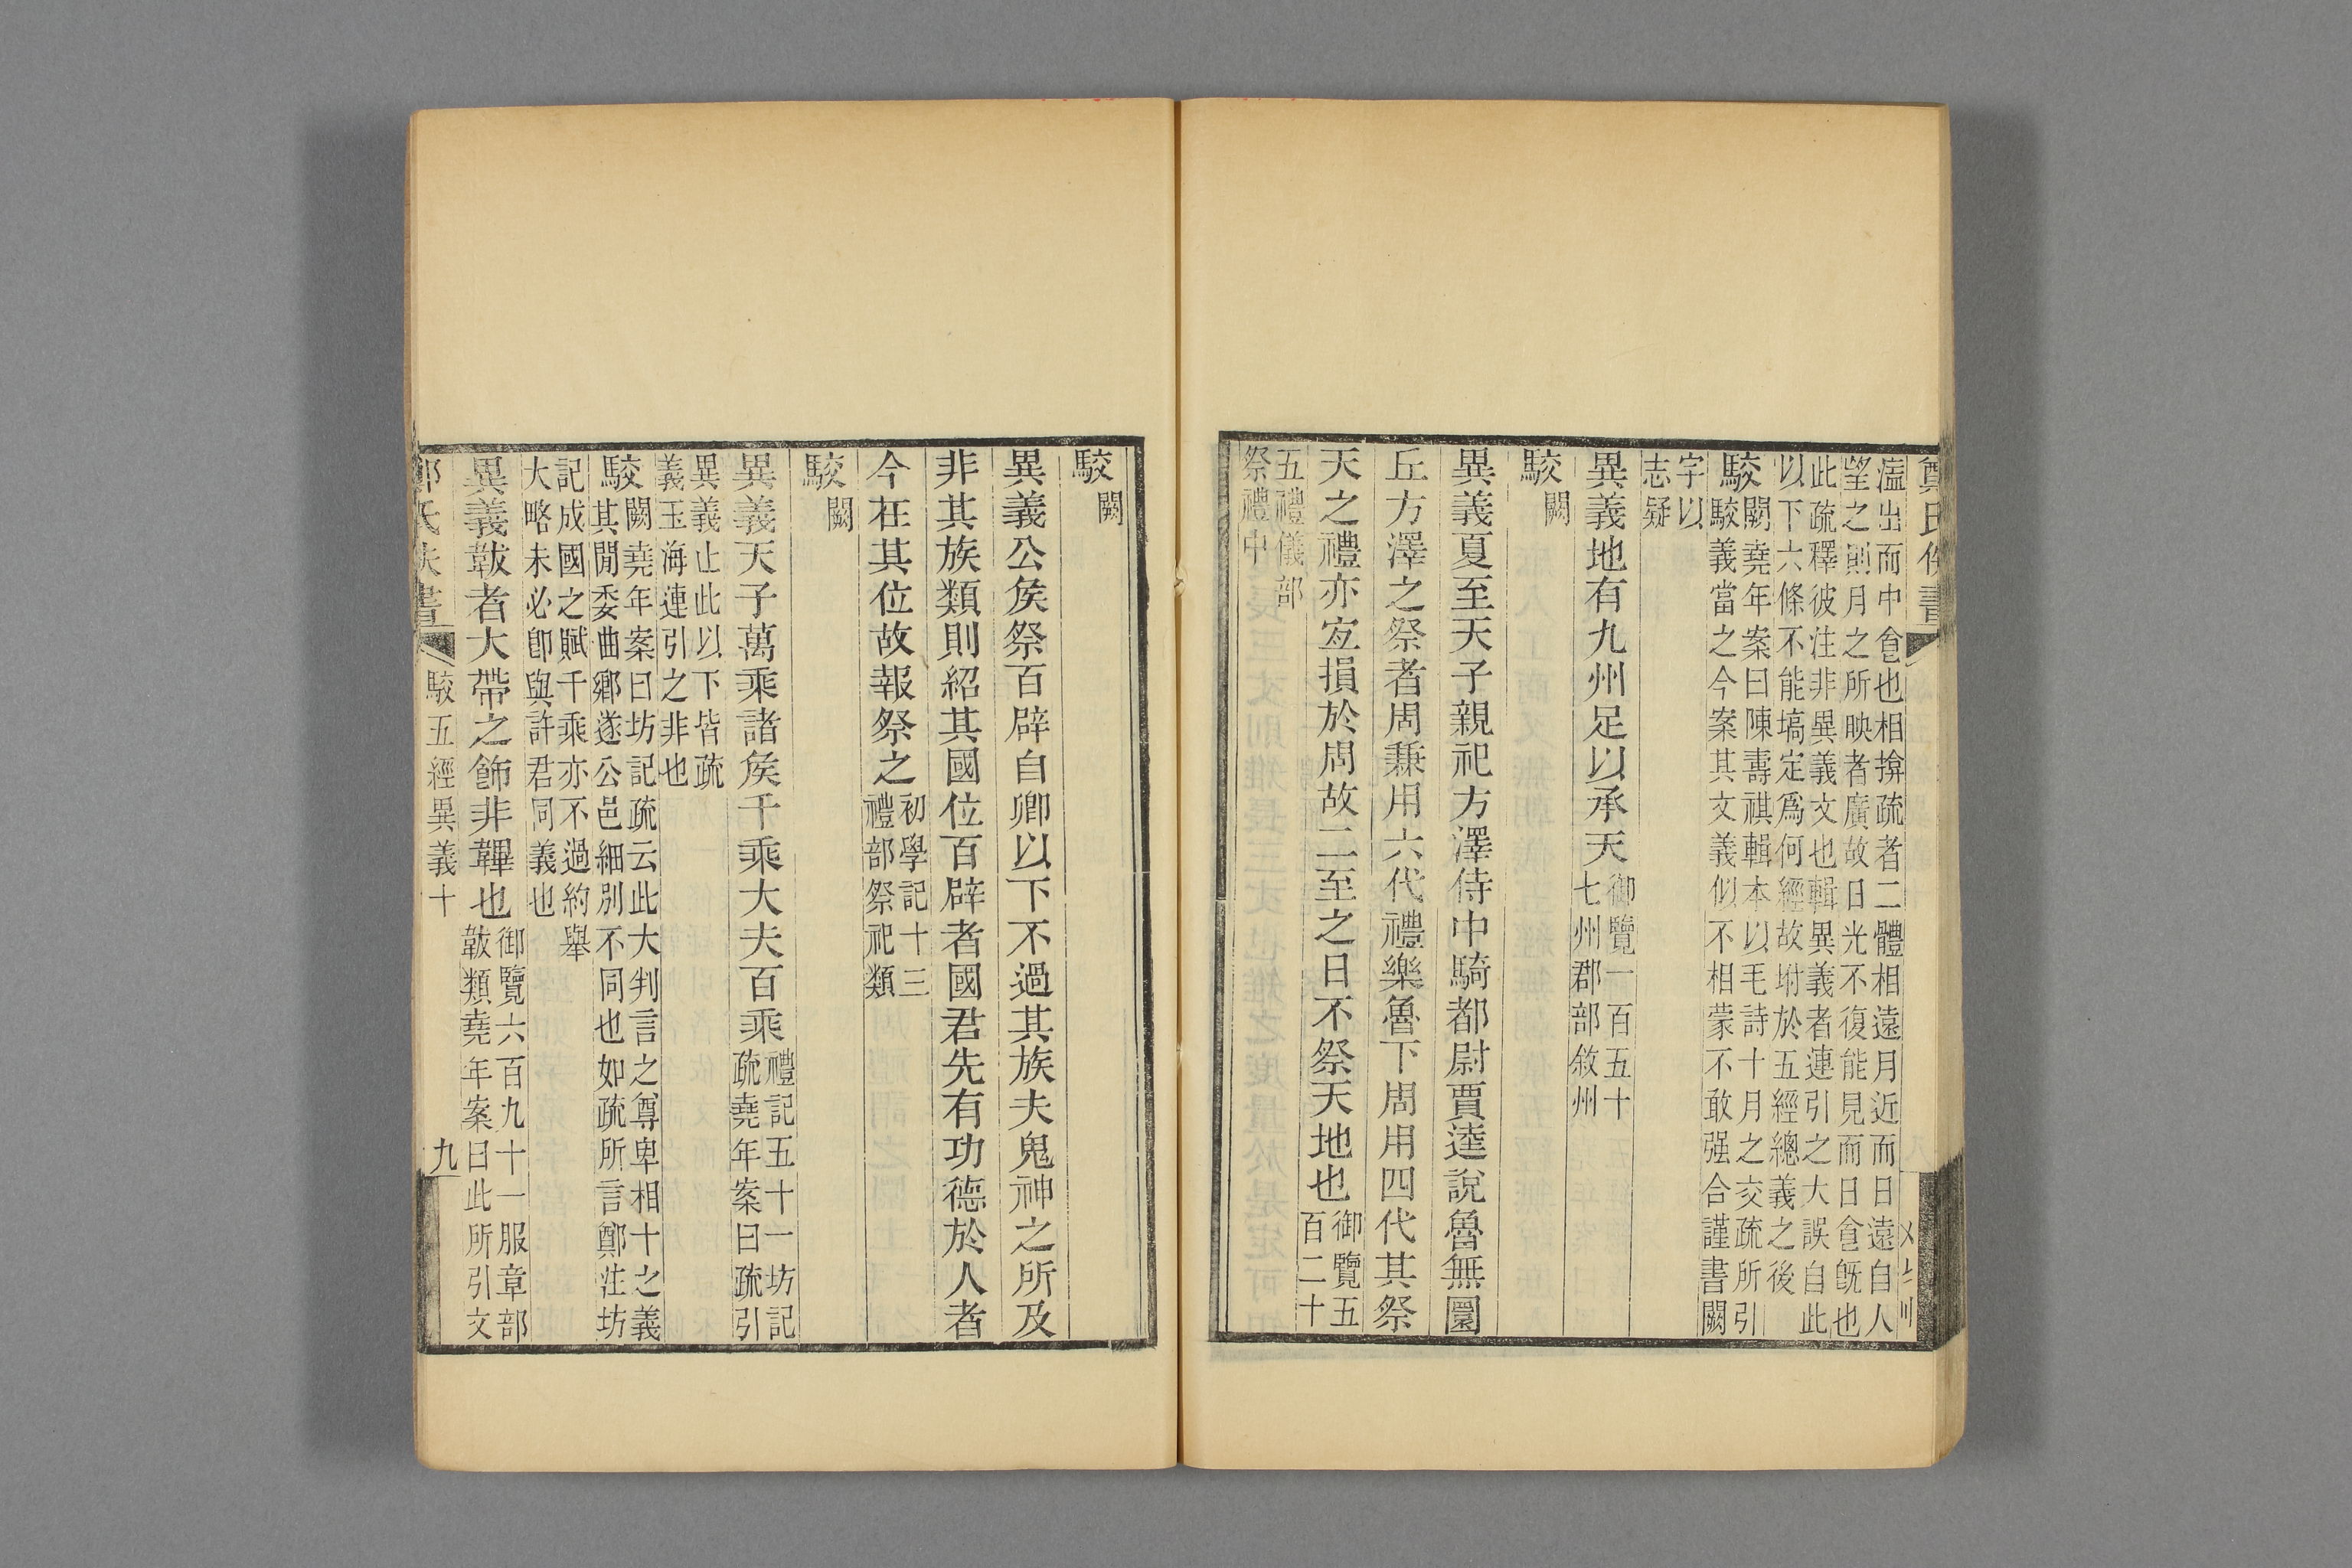 鄭氏佚書
溢出而中食也相揜疏者二體相遠月近而日遠自人
望之則月之所映者廣故日光不復能見而日食旣也
此疏釋彼注非異義文也輯異義者連引之大誤自此
以下六條不能塙定爲何經故坿於五經總義之後
駮闕堯年案曰陳壽祺輯本以毛詩十月之交疏所引
駮義當之今案其文義似不相蒙不敢强合謹書闕
字以
志疑
異義地有九州足以承天御覽一百五十
七州郡部敘州
駮闕
異義夏至天子親祀方澤侍中騎都尉賈逵說魯無圜
丘方澤之祭者周兼用六代禮樂魯下周用四代其祭
天之禮亦宐損於周故二至之日不祭天地也御覽五
百二十
五禮儀部
祭禮中
駮闕
異義公矦祭百辟自卿以下不過其族夫鬼神之所及
非其族類則紹其國位百辟者國君先有功德於人者
今在其位故報祭之初學記十三
禮部祭祀類
駮闕
異義天子萬乘諸矦千乘大夫百乘禮記五十一坊記
疏堯年案曰疏引
異義止此以下皆疏
義玉海連引之非也
駮闕堯年案曰坊記疏云此大判言之尊卑相十之義
其閒委曲鄉遂公邑細別不同也如疏所言鄭注坊
記成國之賦千乘亦不過約舉
大略未必卽與許君同義也
異義韍者大帶之飾非韠也御覽六百九十一服章部
韍類堯年案曰此所引文
鄭氏佚書
駮五經異義十
九